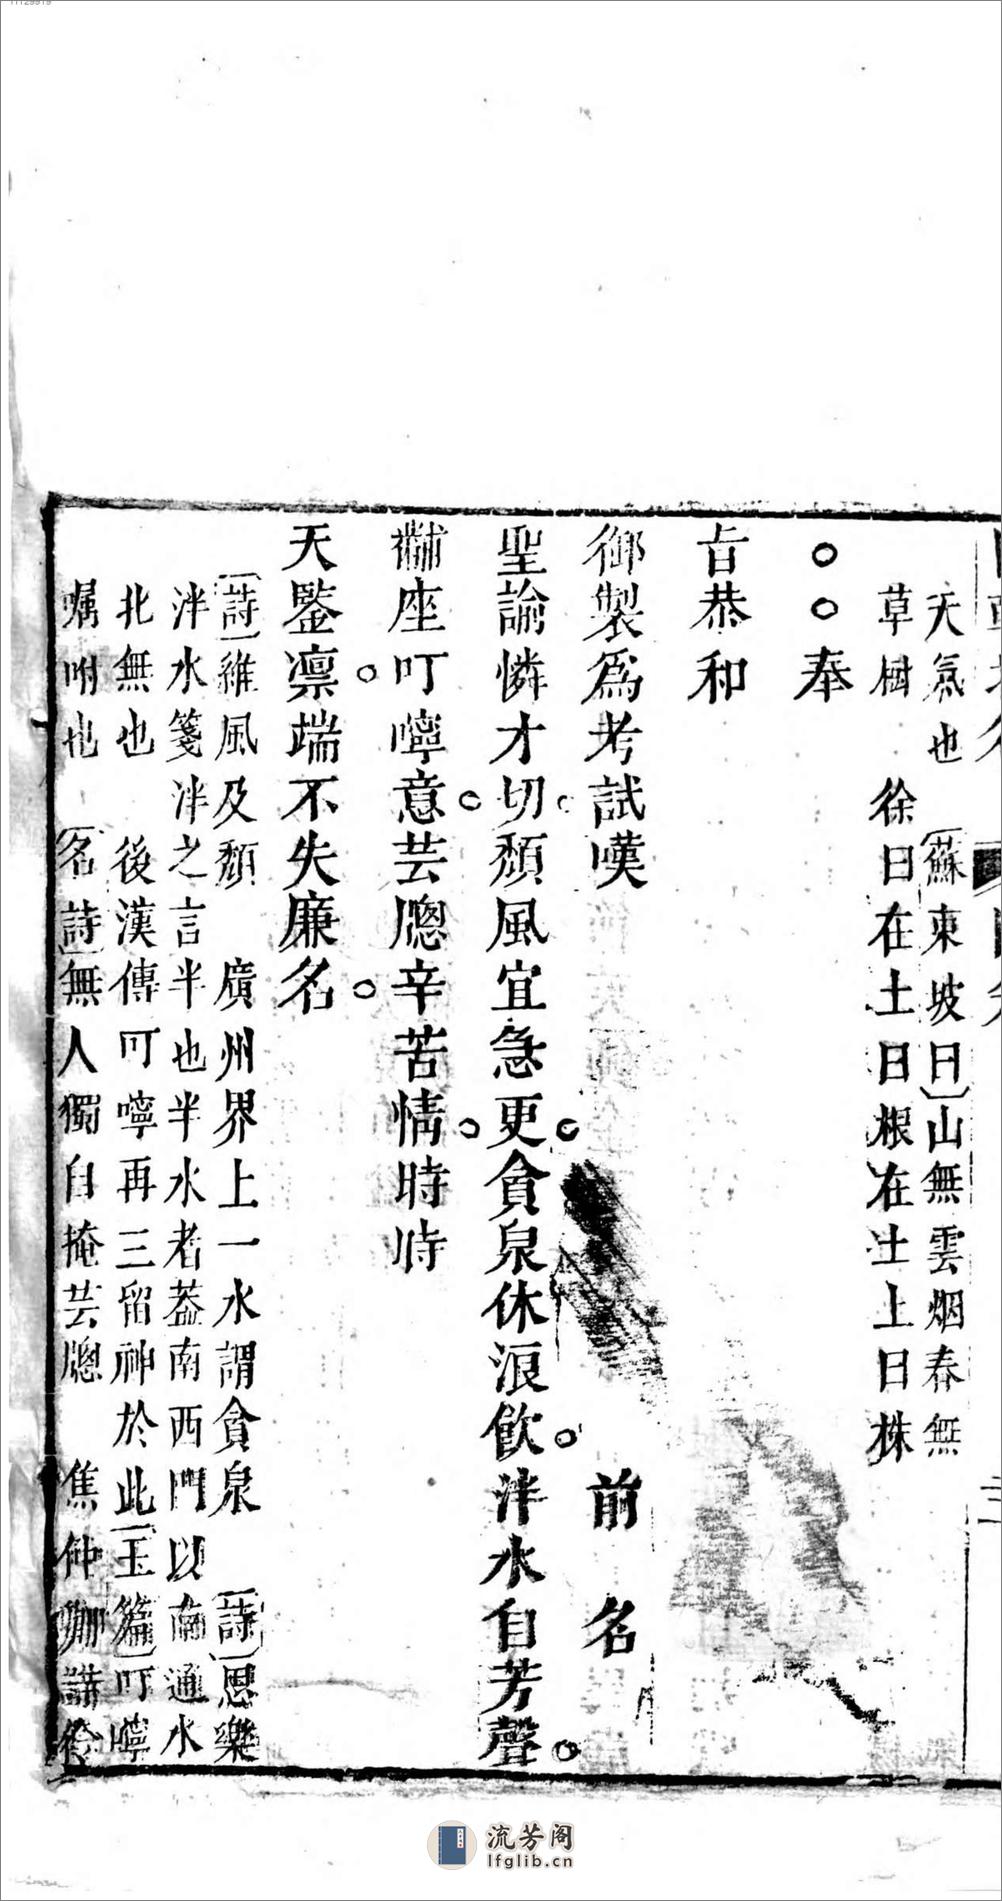 天氣也 蘇東坡曰山無雲烟春無
草樹 徐曰在土曰根在土上曰株
○○奉
旨恭和
御製爲考試嘆 前名
聖諭憐才切頹風宜急更貪泉休浪飲泮水自芳聲
黼座叮嚀意芸牕辛苦情時時
天鑒凛端不失廉名
詩維風及頹 廣州界上一水謂貪泉 詩思樂
泮水箋泮之言半也半水者葢南西門以南通水
北無也 後漢傳叮嚀再三留神於此玉篇叮嚀
囑咐也 名詩無人獨自掩芸牕 焦仲卿
流芳阁
lfglib.cn
11129919